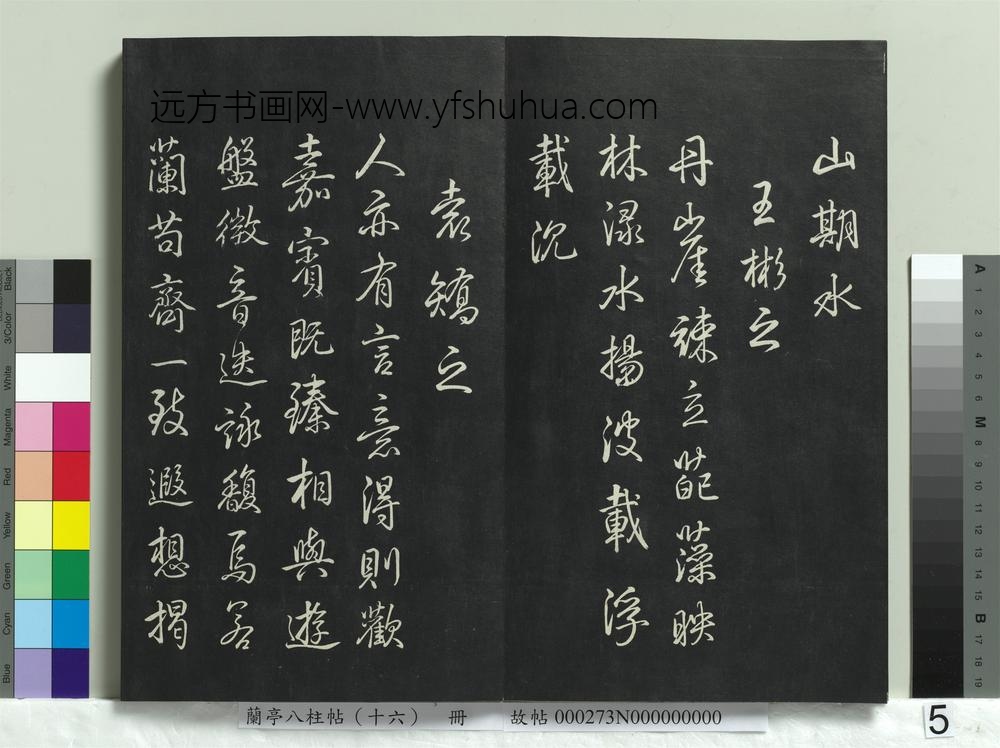 远方书画网-www.yfshuhua.com
山期水
王彬之
丹崖竦立葩藻映
林渌水揚波載浮
載沉
袁矯之
人亦有言意得則歡
嘉賓既臻相與遊
盤微音迭詠馥焉若
蘭苟齊一致遐想揭
蘭亭八柱帖（十六） 冊 故帖 000273N000000000
5
Black
3/Color
White
Magenta
Red
Yellow
Green
Cyan
Blue
A
1
2
3
4
5
6
M
8
9
10
11
12
13
14
15
B
17
18
19